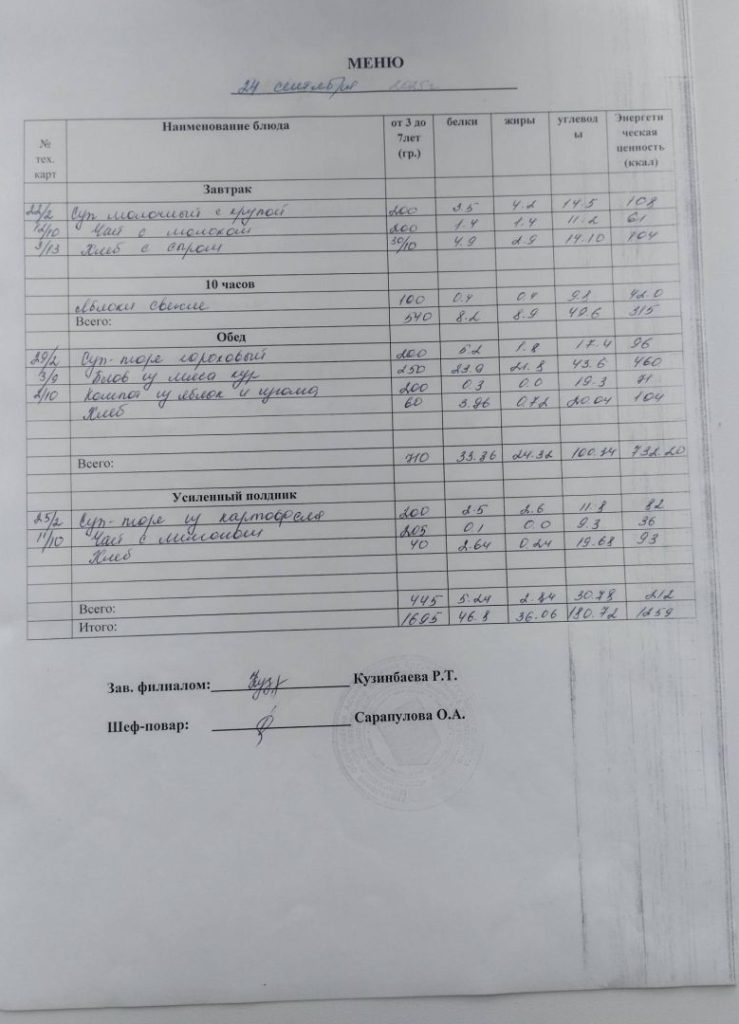 МЕНЮ
24 сентября 2025г
№ тех. карт Наименование блюда от 3 до 7лет (гр.) белки жиры углеводы Энергетическая ценность (ккал)
Завтрак
22/2 Суп молочный с крупой 200 3.5 4.2 14.5 108
12/10 Чай с молоком 200 1.4 1.4 11.2 61
3/13 Хлеб с сыром 30/10 4.9 2.9 14.10 104
10 часов
Яблоки свежие 100 0.4 0.4 9.8 42.0
Всего: 540 8.2 8.9 49.6 315
Обед
29/2 Суп-пюре гороховый 200 5.2 1.8 17.4 96
3/9 Плов из мяса кур 250 23.9 21.8 43.6 460
2/10 Компот из яблок и изюма 200 0.3 0.0 19.3 71
Хлеб 60 3.96 0.72 20.04 104
Всего: 710 33.36 24.32 100.34 732.20
Усиленный полдник
25/2 Суп-пюре из картофеля 200 2.5 2.6 11.8 82
11/10 Чай с лимоном 205 0.1 0.0 9.3 36
Хлеб 40 2.64 0.24 19.68 93
Всего: 445 5.24 2.84 30.78 212
Итого: 1695 46.8 36.06 180.72 1259
Зав. филиалом: Куз Кузинбаева Р.Т.
Шеф-повар: Сарапулова О.А.